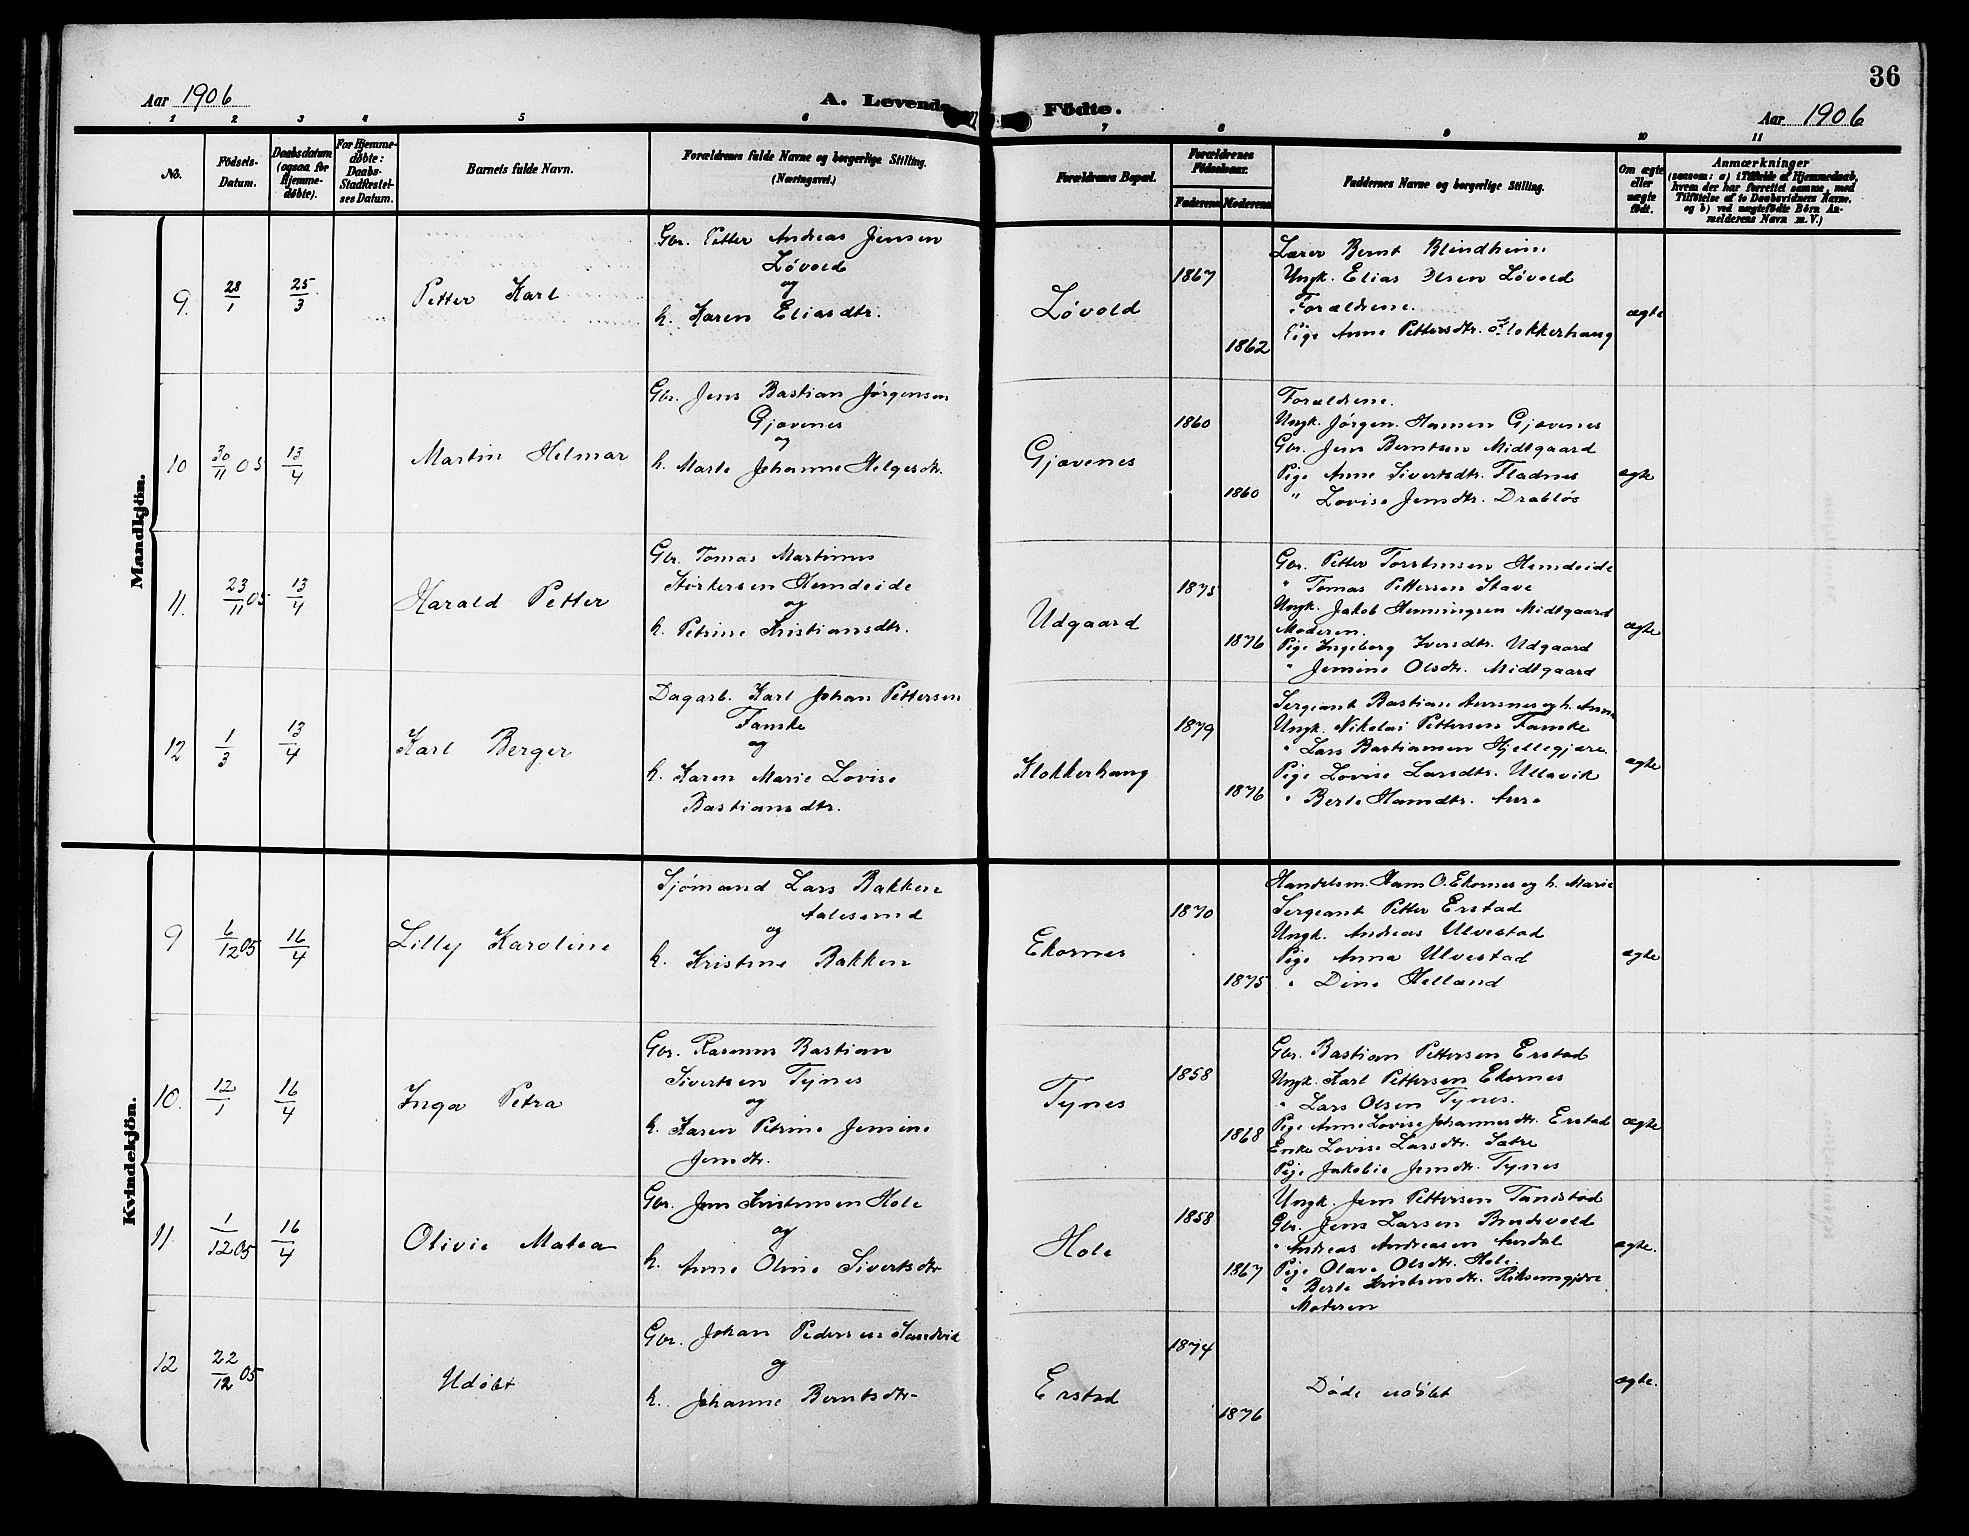 36
Aar 1906
A. Levende Födte.
Aar 1906
1 2 3 4 5 6 7 8 9 10 11
No.
Födsels-
Datum.
Daabsdatum
(ogsaa for
Hjemme-
døbte).
For Hjemme-
døbte:
Daabs-
Stadfæstel-
ses Datum.
Barnets fulde Navn.
Forældrenes fulde Navne og borgerlige Stilling.
(Næringsvei.)
Forældrenes Bopæl.
Forældrenes
Födselsaar.
Faderens
Moderens
Faddernes Navne og borgerlige Stilling.
Om ægte
eller
uægte
født.
Anmærkninger
(saasom: a) i Tilfælde af Hjemmedaab,
hvem der har forrettet samme, med
Tilföielse af to Daabsvidners Navne,
og b) ved uægtefödte Börn An-
melderens Navn m. V.)
Mandkjön.
9. 28/1 25/3 Petter Karl
Gbr. Petter Andreas Jensen
Løvold
og
h. Karen Eliasdtr.
Løvold
1867
1862
Lærer Bernt Blindheim
Ungk. Elias Olsen Løvold
Forældrene.
Pige Anne Pettersdtr. Klokkerhaug
ægte
10 30/11 05 13/4 Martin Helmar
Gbr. Jens Bastian Jørgensen
Gjævenes
og
h. Marte Johanne Helgesdtr.
Gjævenes
1860
1860
Forældrene.
Ungk. Jørgen Hansen Gjævenes
Gbr. Jens Berntsen Midtgaard
Pige Anne Sivertsdtr. Fladnes
" Lovise Jensdtr. Drabløs
ægte
11. 23/11 05 13/4 Harald Petter
Gbr. Tomas Martinus
Størkersen Hundeide
og
h. Petrine Kristiansdtr.
Udgaard
1875
1876
Gbr. Petter Torstensen Hundeide
" Tomas Pettersen Stave
Ungk. Jakob Henningsen Midtgaard
Moderen.
Pige Ingeborg Iversdtr. Udgaard
" Jensine Olsdtr. Midtgaard
ægte
12 1/3 13/4 Karl Berger
Dagarb. Karl Johan Pettersen
Fauske
og
h. Karen Marie Lovise
Bastiansdtr.
Klokkerhaug
1879
1876
Sergeant Bastian Aursnes og h. Anna
Ungk. Nikolai Pettersen Fauske
" Lars Bastiansen Hjellegjære
Pige Lovise Larsdtr. Ullavik
" Berte Hansdtr. Aure
ægte
Kvindekjön.
9 6/12 05 16/4 Lilly Karoline
Sjømand Lars Bakken
Aalesund
og
h. Kristine Bakken
Ekornes
1870
1875
Handelsm. Hans O. Ekornes og h. Marie
Sergeant Petter Erstad
Ungk. Andreas Ulvestad
Pige Anna Ulvestad
" Dine Helland
ægte
10. 12/1 16/4 Inga Petra
Gbr. Rasmus Bastian
Sivertsen Tynes
og
h. Karen Petrine Jensine
Jensdtr.
Tynes
1858
1868
Gbr. Bastian Pettersen Erstad
Ungk. Karl Pettersen Ekornes
" Lars Olsen Tynes.
Pige Anne Lovise Johannesdtr. Erstad
Enke Lovise Larsdtr. Sætre
Pige Jakobie Jensdtr. Tynes
ægte
11. 1/12 05 16/4 Olivie Matea
Gbr. Jens Kristensen Hole
og
h. Anne Oline Sivertsdtr
Hole
1858
1867
Ungk. Jens Pettersen Tandstad
Gbr. Jens Larsen Brudevold
" Andreas Andreasen Aurdal
Pige Olave Olsdtr. Hole
" Berte Kristensdtr.
Moderen
ægte.
12 22/12 05 Udøbt
Gbr. Johan Pedersen Sandvik
og
h. Johanne Berntsdtr
Erstad
1874
1876
Døde udøbt
ægte.